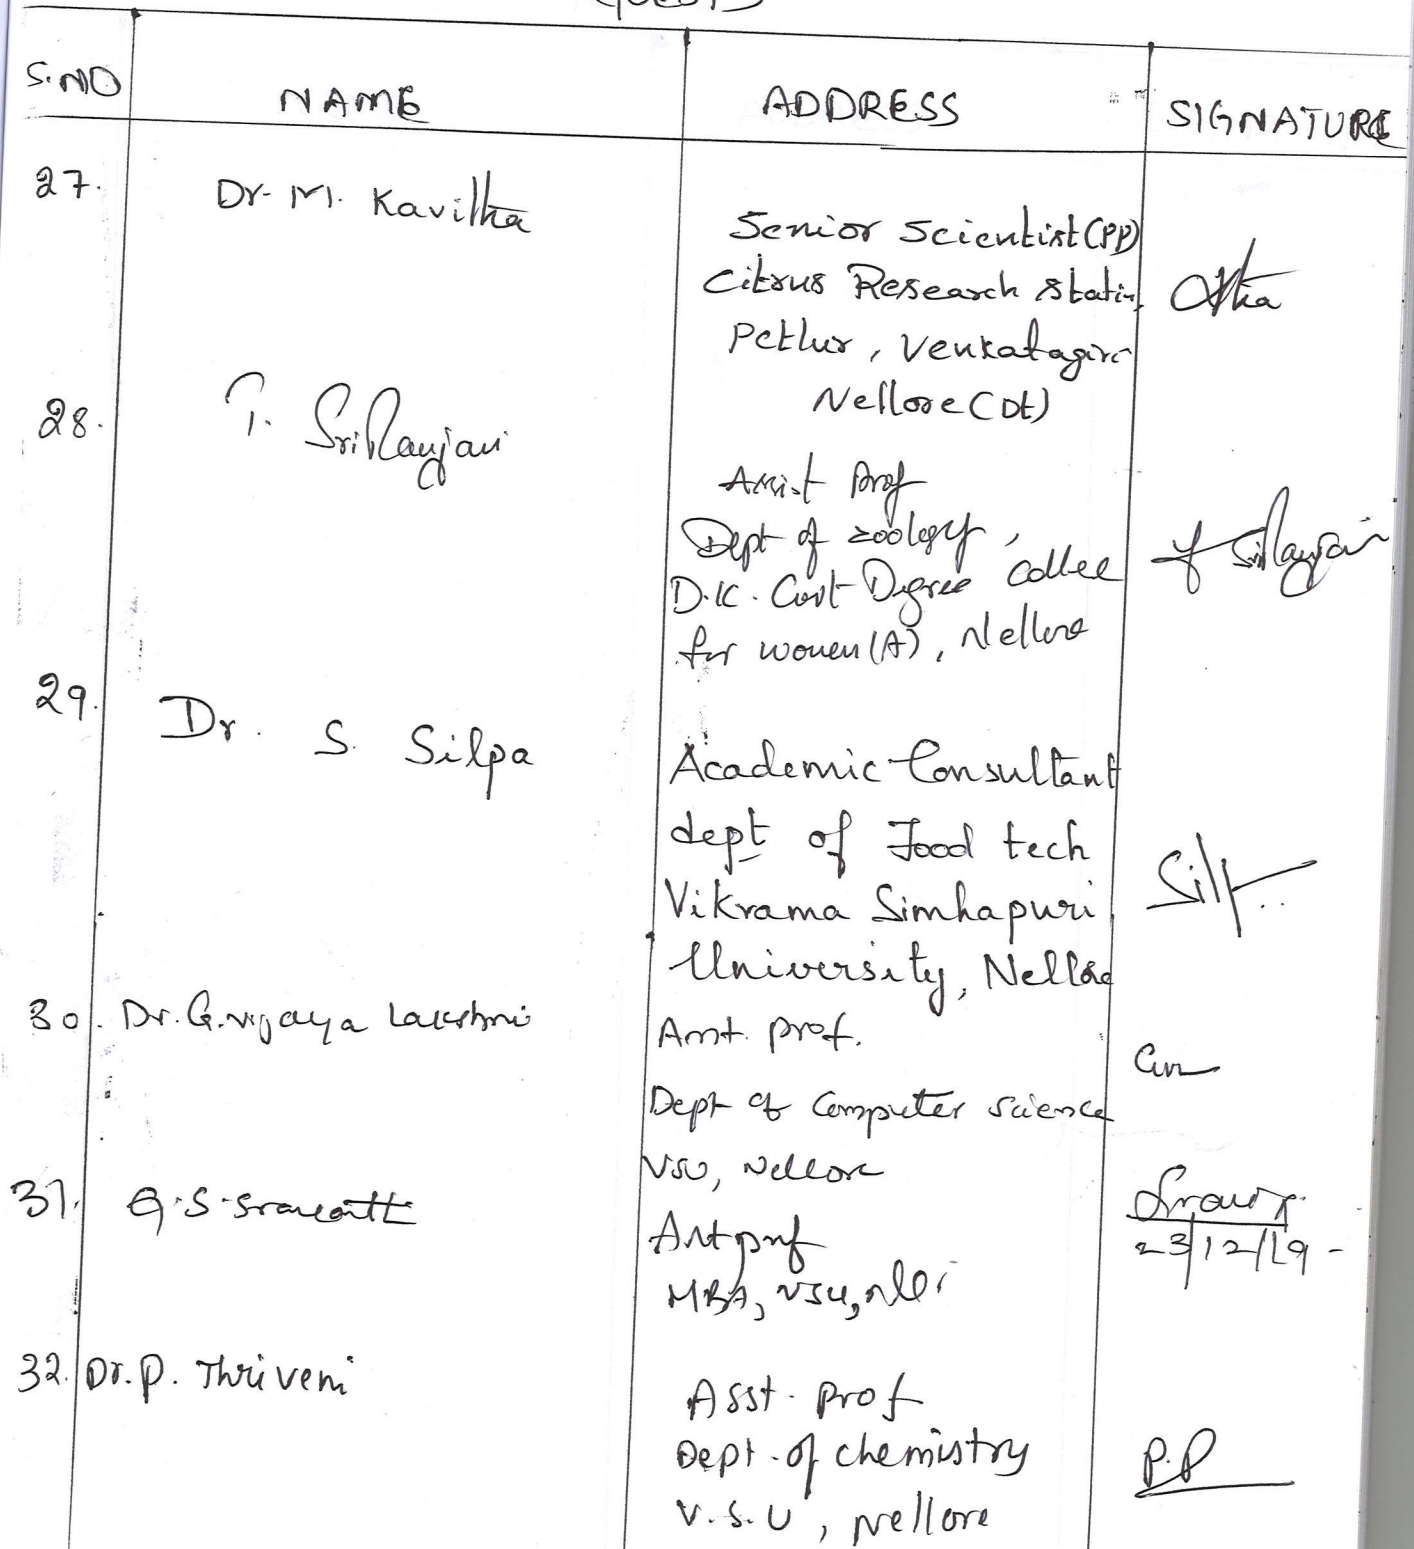 S.NO NAME ADDRESS SIGNATURE
27. Dr. M. Kavitha
Senior Scientist (PP)
Citrus Research Statin,
Petlur, Venkatagiri
Nellore (Dt)
28. T. SriRanjani
Assist Prof
Dept of zoology,
D.K. Govt Degree Collee
for women (A), Nellore
29. Dr. S. Silpa
Academic Consultant
dept of Food tech
Vikrama Simhapuri
University, Nellore
30. Dr. G. Vijaya Lakshmi
Asst. prof.
Dept of Computer Science
VSU, Nellore
31. G.S.
Asst prof
MBA, VSU,
23/12/19
32. Dr. P. Thriveni
Asst. Prof
Dept. of chemistry
V.S.U, Nellore
P.P